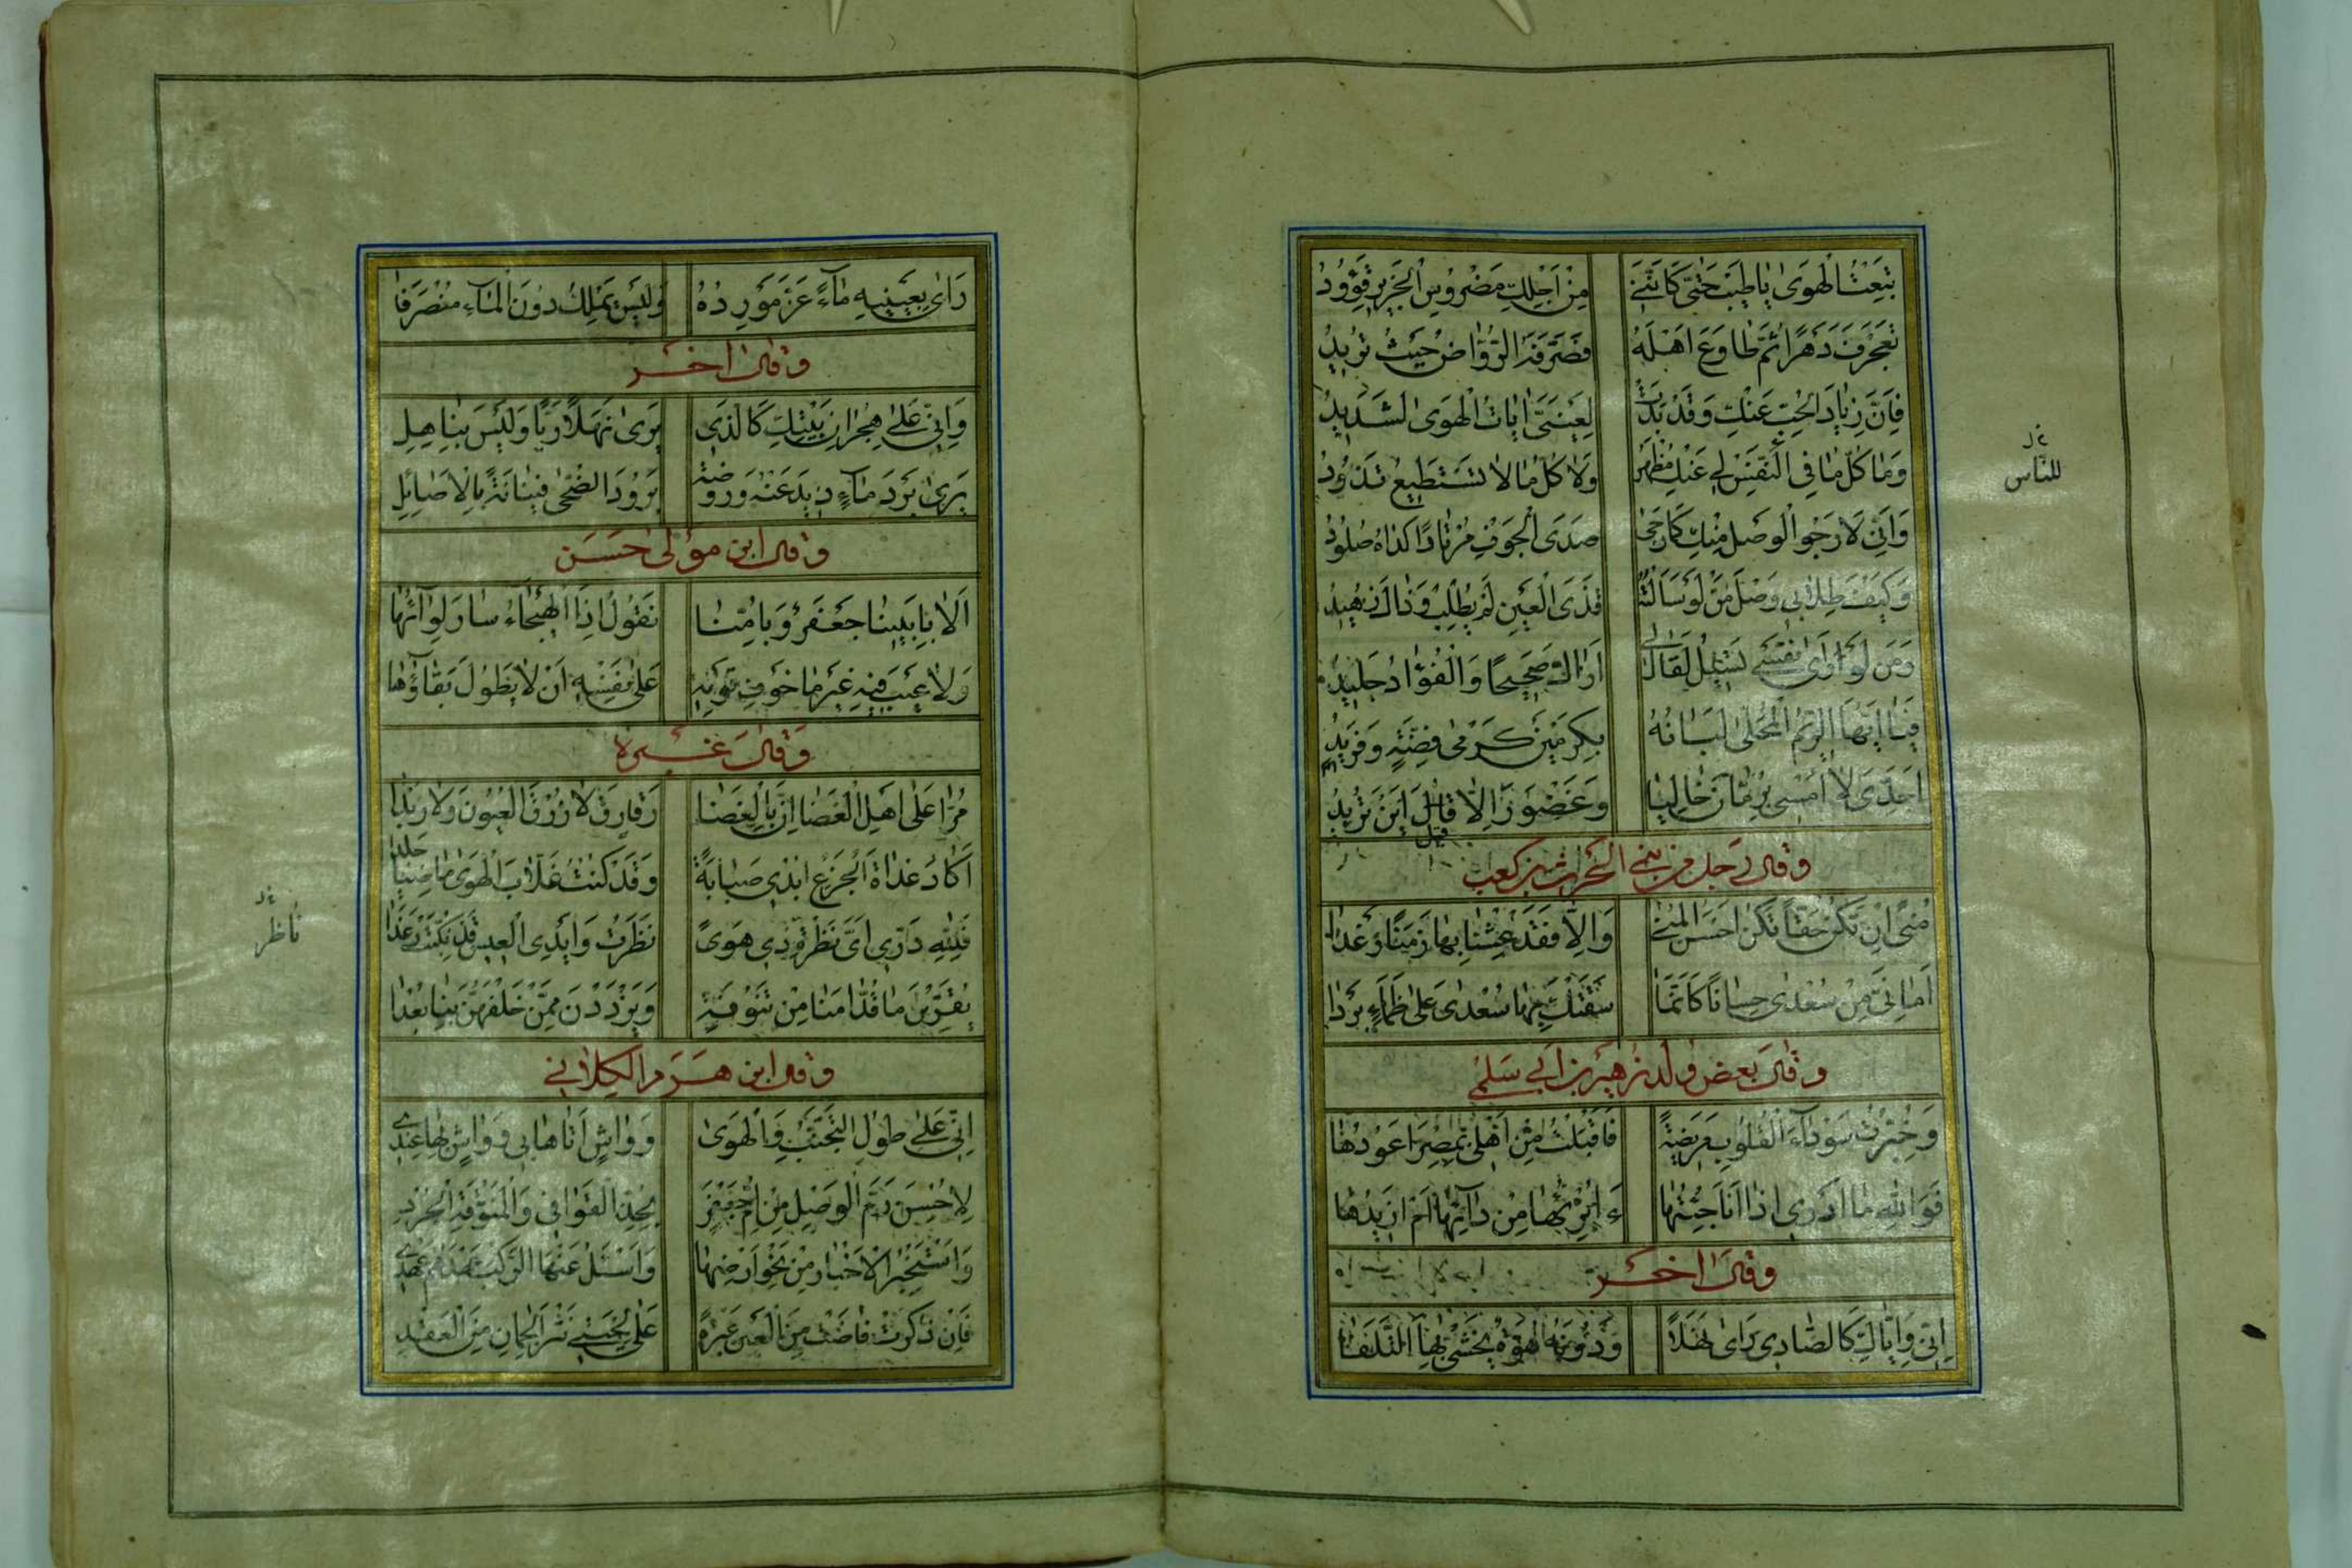 تَبِعْتُ الْهَوَىٰ يَا طَيِّبَ حَتّٰى كَاَنَّنِي مِنْ اَجْلِكِ مَضْرُوسُ الْجَرِيرِ قَؤُودُ
تَعَجْرَفَ دَهْرًا ثُمَّ طَاوَعَ اَهْلَهُ فَصَرَّفَهُ الرُّوَّاضُ حَيْثُ تُرِيدُ
فَاِنَّ زِيَادَ الْحُبِّ عَنْكِ وَقَدْ بَدَتْ لِعَيْنَيَّ اٰيَاتُ الْهَوَىٰ لَشَدِيدُ
وَمَا كُلُّ مَا فِي النَّفْسِ لِي عَنْكِ مُظْهَرٌ وَلَا كُلُّ مَا لَا تَسْتَطِيعُ تَذُودُ
للناس
وَاِنِّي لَاَرْجُو الْوَصْلَ مِنْكِ كَمَا رَجَىٰ صَدَى الْجَوْفِ مُرْتَادًا كُدَاهُ صَلُودُ
وَكَيْفَ طِلَابِي وَصْلَ مَنْ لَوْ سَاَلْتُهُ قَذَى الْعَيْنِ لَمْ يُطْلِبْ وَذَاكَ زَهِيدُ
وَمَنْ لَوْ رَاٰى نَفْسِي تَسِيلُ لَقَالَ لِي اَرَاكَ صَحِيحًا وَالْفُؤَادُ جَلِيدُ
فَيَا اَيُّهَا الرِّيمُ الْمُحَلّٰى لَبَانُهُ بِكَرْمَيْنِ كَرْمَيْ فِضَّةٍ وَفَرِيدُ
اَجِدِّيَ لَا اُمْسِي بِرَمَّانَ خَالِيًا وَغَضْوَرَ اِلَّا قَالَ اَيْنَ تُرِيدُ
قيل
وقال رجل من بني الحرث بن كعب
مُنًى اِنْ تَكُنْ حَقًّا تَكُنْ اَحْسَنَ الْمُنٰى وَاِلَّا فَقَدْ عِشْنَا بِهَا زَمَنًا رَغْدًا
اَمَانِيَّ مِنْ سُعْدٰى حِسَانًا كَاَنَّمَا سَقَتْكَ بِهَا سُعْدٰى عَلٰى ظَمَاءٍ بَرْدَا
وقال بعض ولد زهير بن ابي سلمى
وَخُبِّرْتُ سَوْدَاءَ الْقُلُوبِ مَرِيضَةً فَاَقْبَلْتُ مِنْ اَهْلِي بِمِصْرَ اَعُودُهَا
فَوَاللهِ مَا اَدْرِي اِذَا اَنَا جِئْتُهَا ءَاُبْرِئُهَا مِنْ دَائِهَا اَمْ اَزِيدُهَا
وقال اخر
اِنِّي وَاِيَّاكِ كَالصَّادِي رَاٰى نَهَلًا وَدُونَهُ هُوَّةٌ يَخْشٰى بِهَا التَّلَفَا
رَاٰى بِعَيْنَيْهِ مَاءً عَزَّ مَوْرِدُهُ وَلَيْسَ يَمْلِكُ دُونَ الْمَاءِ مُنْصَرَفَا
وقال اخر
وَاِنِّي عَلٰى هِجْرَانِ بَيْتِكِ كَالَّذِي يَرٰى نَهَلًا رَيًّا وَلَيْسَ بِنَاهِلِ
يَرٰى بَرْدَ مَاءٍ ذِيدَ عَنْهُ وَرَوْضَةً بَرُودَ الضُّحٰى فَيْنَانَةً بِالْاَصَائِلِ
وقال ابن مولى حسن
اَلَا بِاَبِينَا جَعْفَرٌ وَبِاُمِّنَا نَقُولُ اِذَا الْهَيْجَاءُ سَارَ لِوَاؤُهَا
وَلَا عَيْبَ فِيهِ غَيْرَ مَا خَوْفِ قَوْمِهِ عَلٰى نَفْسِهِ اَنْ لَا يَطُولَ بَقَاؤُهَا
وقال غيره
مُرَّا عَلٰى اَهْلِ الْغَضَا اِنَّ بِالْغَضَا رَقَارِقَ لَا زُرْقَ الْعُيُونِ وَلَا رَبْدَا
اَكَادُ غَدَاةَ الْجِزْعِ اُبْدِي صَبَابَةً وَقَدْ كُنْتُ غَلَّابَ الْهَوَىٰ مَاضِيًا جَلْدَا
فَلِلّٰهِ دَرِّي اَيَّ نَظْرَةِ ذِي هَوًى نَظَرْتُ وَاَيْدِي الْعِيسِ قَدْ نَكَّبَتْ رَعْدَا
ناظر
يُقَرِّبْنَ مَا قُدَّامَنَا مِنْ تَنُوفَةٍ وَيَزْدَدْنَ مِمَّنْ خَلْفَهُنَّ بِنَا بُعْدَا
وقال ابن هرم الكلابي
اِنِّي عَلٰى طُولِ التَّجَنُّبِ وَالْهَوَىٰ وَوَاشٍ اَتَاهَا بِي وَوَاشٍ بِهَا عِنْدِي
لَاُحْسِنُ رَمَّ الْوَصْلِ مِنْ اُمِّ جَعْفَرٍ بِحُذِّ الْقَوَافِي وَالْمُنَوَّقَةِ الْجُرْدِ
وَاَسْتَخْبِرُ الْاَخْبَارَ مِنْ نَحْوِ اَرْضِهَا وَاَسْئَلُ عَنْهَا الرَّكْبَ عَهْدُهُمْ عَهْدِي
فَاِنْ ذُكِرَتْ فَاضَتْ مِنَ الْعَيْنِ عَبْرَةٌ عَلٰى لِحْيَتِي نَثْرَ الْجُمَانِ مِنَ الْعِقْدِ